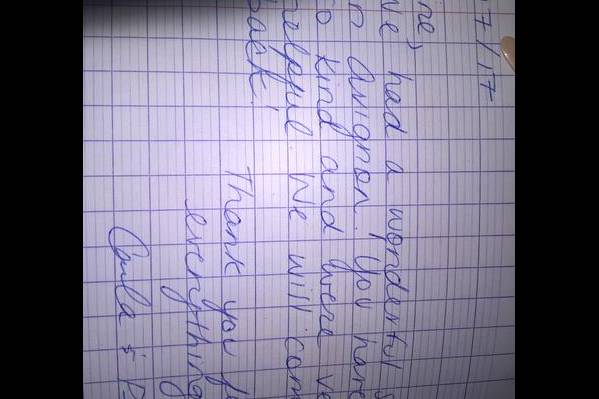 7/17
ne,
ve had a wonderful s
n Avignon. You have
o kind and were ve
helpful. We will com
back!
Thank you f
everything
& P